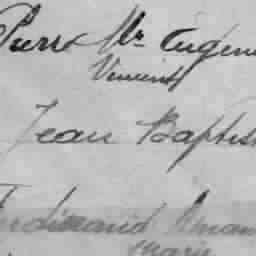 Pierre Mr Eugene
Vincent
Jean Baptist
Ferdinand Aman
Marie